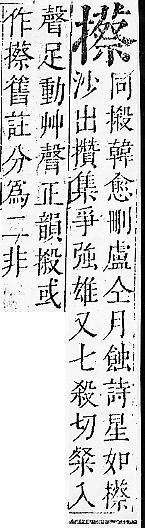 攃同摋韓愈刪盧仝月蝕詩星如攃
沙出攢集爭強雄又七殺切粲入
聲足動艸聲正韻摋或
作攃舊註分為二非